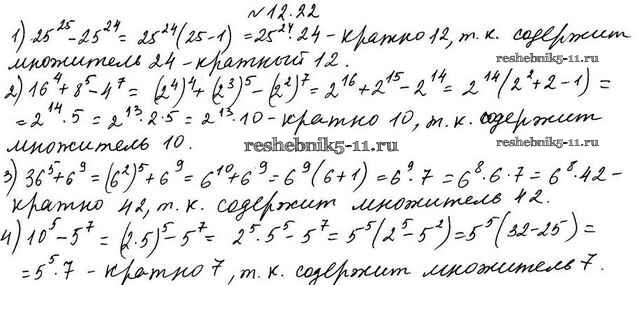 №12.22
1) 25²⁵-25²⁴= 25²⁴(25-1) =25²⁴·24 - кратно 12, т.к. содержит
reshebnik5-11.ru
множитель 24 - кратный 12.
2) 16⁴+8⁵-4⁷= (2⁴)⁴+(2³)⁵-(2²)⁷=2¹⁶+2¹⁵-2¹⁴= 2¹⁴(2²+2-1) =
=2¹⁴·5=2¹³·2·5=2¹³·10 - кратно 10, т.к. содержит
reshebnik5-11.ru
множитель 10.
reshebnik5-11.ru
3) 36⁵+6⁹=(6²)⁵+6⁹=6¹⁰+6⁹=6⁹(6+1)=6⁹·7=6⁸·6·7=6⁸·42-
кратно 42, т.к. содержит множитель 42.
4) 10⁵-5⁷=(2·5)⁵-5⁷= 2⁵·5⁵-5⁷=5⁵(2⁵-5²)=5⁵(32-25)=
=5⁵·7 - кратно 7, т.к. содержит множитель 7.